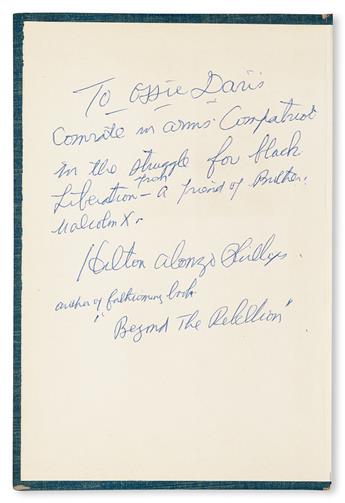 To Ossie Davis
Comrade in arms. Compatriot
in the struggle for black
Liberation - from a friend of Brother
Malcolm X.
Hilton Alonzo Phillips.
author of forthcoming book
"Beyond The Rebellion"